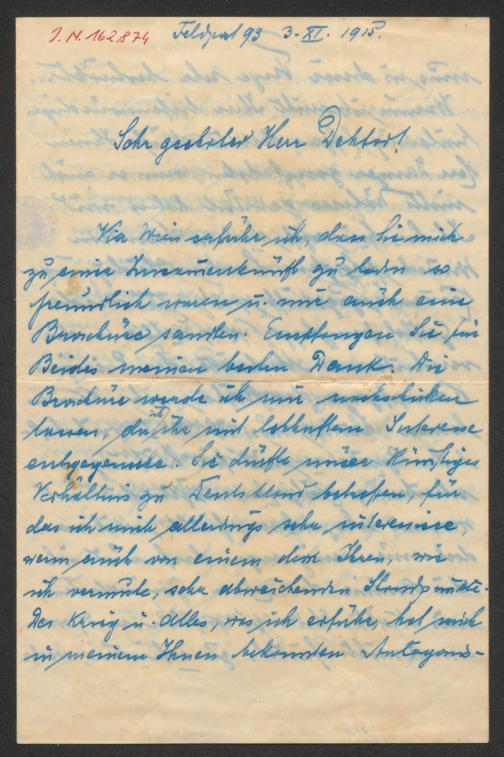 J. N. 162.874
Feldpost 93 3. XI. 1915.
Sehr geehrter Herr Doktor!
Via Wien erfuhr ich, dass Sie mich
zu einer Zusammenkunft zu laden so
freundlich waren u. mir auch eine
Broschüre sandten. Empfangen Sie für
Beides meinen besten Dank. Die
Broschüre werde ich mir nachschicken
lassen, da ich ihr mit lebhaftem Interesse
entgegensehe. Sie dürfte unser künftiges
Verhältnis zu Deutschland betreffen, für
das ich mich allerdings sehr interessiere,
wenn auch von einem dem Ihren, wie
ich vermute, sehr abweichenden Standpunkte.
Der Krieg u. Alles, was ich erfuhr, hat mich
in meinem Ihnen bekannten Antagonis-